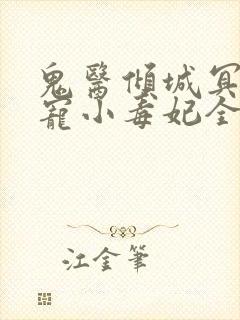 鬼醫傾城冥
寵小毒妃全
江金筆